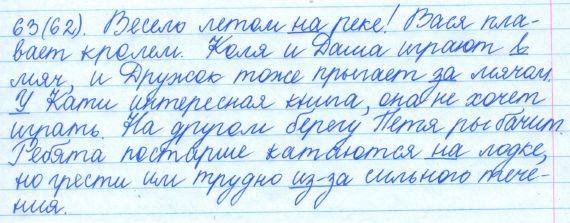 63(62). Весело летом на реке! Вася пла-
вает кролем. Коля и Даша играют в
мяч, и Дружок тоже прыгает за мячом.
У Кати интересная книга, она не хочет
играть. На другом берегу Петя рыбачит.
Ребята постарше катаются на лодке,
но грести им трудно из-за сильного тече-
ния.